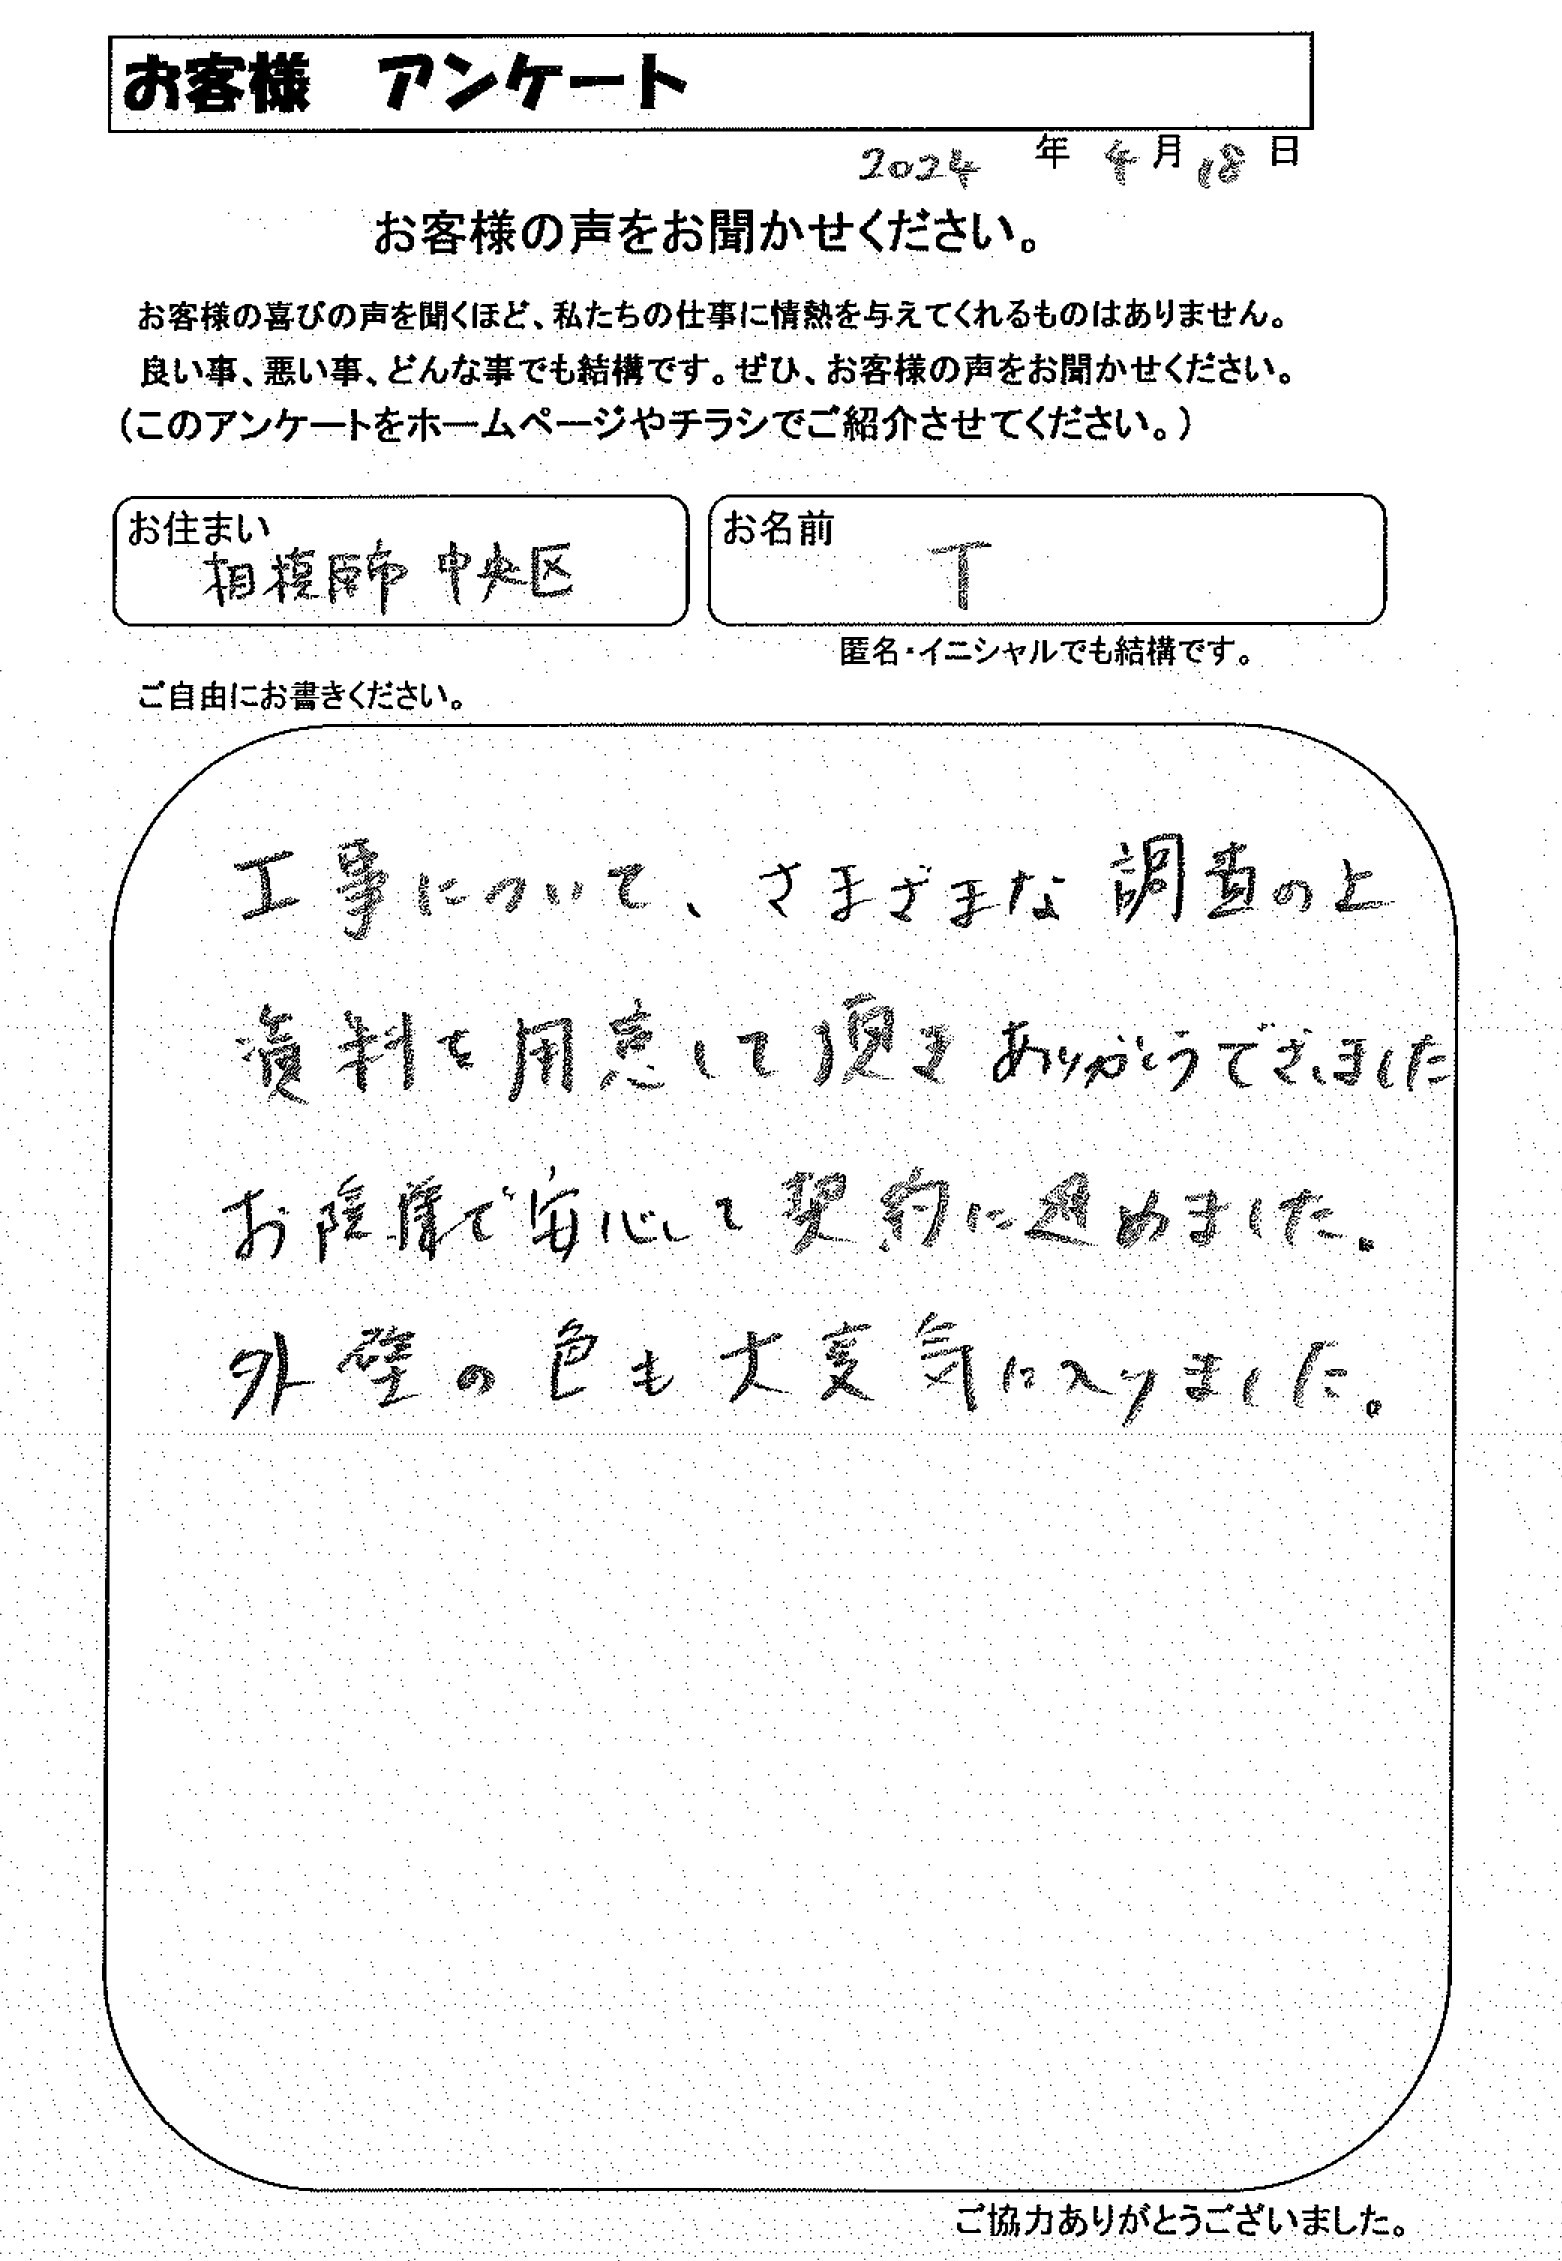 お客様　アンケート
2024 年 4月 18 日
お客様の声をお聞かせください。
お客様の喜びの声を聞くほど、私たちの仕事に情熱を与えてくれるものはありません。
良い事、悪い事、どんな事でも結構です。ぜひ、お客様の声をお聞かせください。
（このアンケートをホームページやチラシでご紹介させてください。）
お住まい
相模原市 中央区
お名前
T
匿名・イニシャルでも結構です。
ご自由にお書きください。
工事について、さまざまな調査の上
資料を用意して頂き ありがとうございました
お陰様で安心して契約に進めました.
外壁の色も大変気に入りました。
ご協力ありがとうございました。